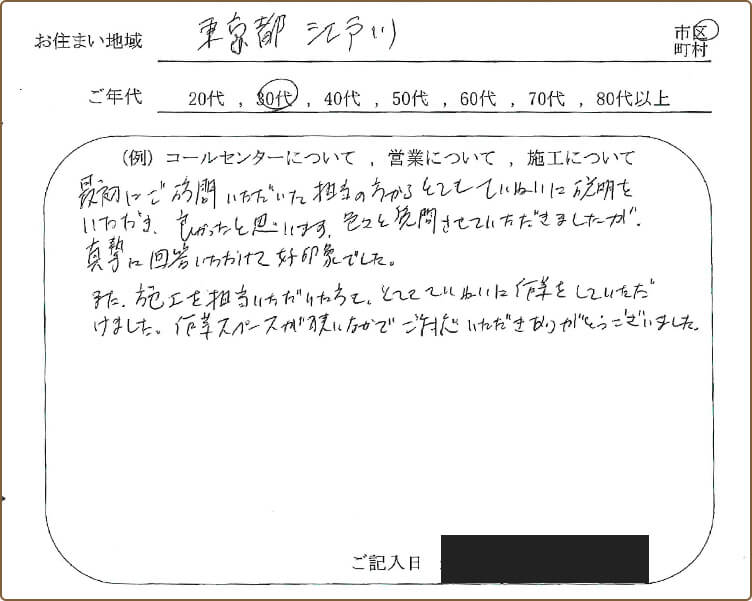 お住まい地域 東京都 江戸川 市区
町村
ご年代 20代 , 30代 , 40代 , 50代 , 60代 , 70代 , 80代以上
(例) コールセンターについて , 営業について , 施工について
最初にご訪問いただいた担当の方からとてもていねいに説明を
いただき、良かったと思います。色々と質問させていただきましたが、
真摯に回答いただけて好印象でした。
また、施工を担当いただいた方も、とてもていねいに作業をしていただ
けました。作業スペースが狭いなかでご対応いただきありがとうございました。
ご記入日